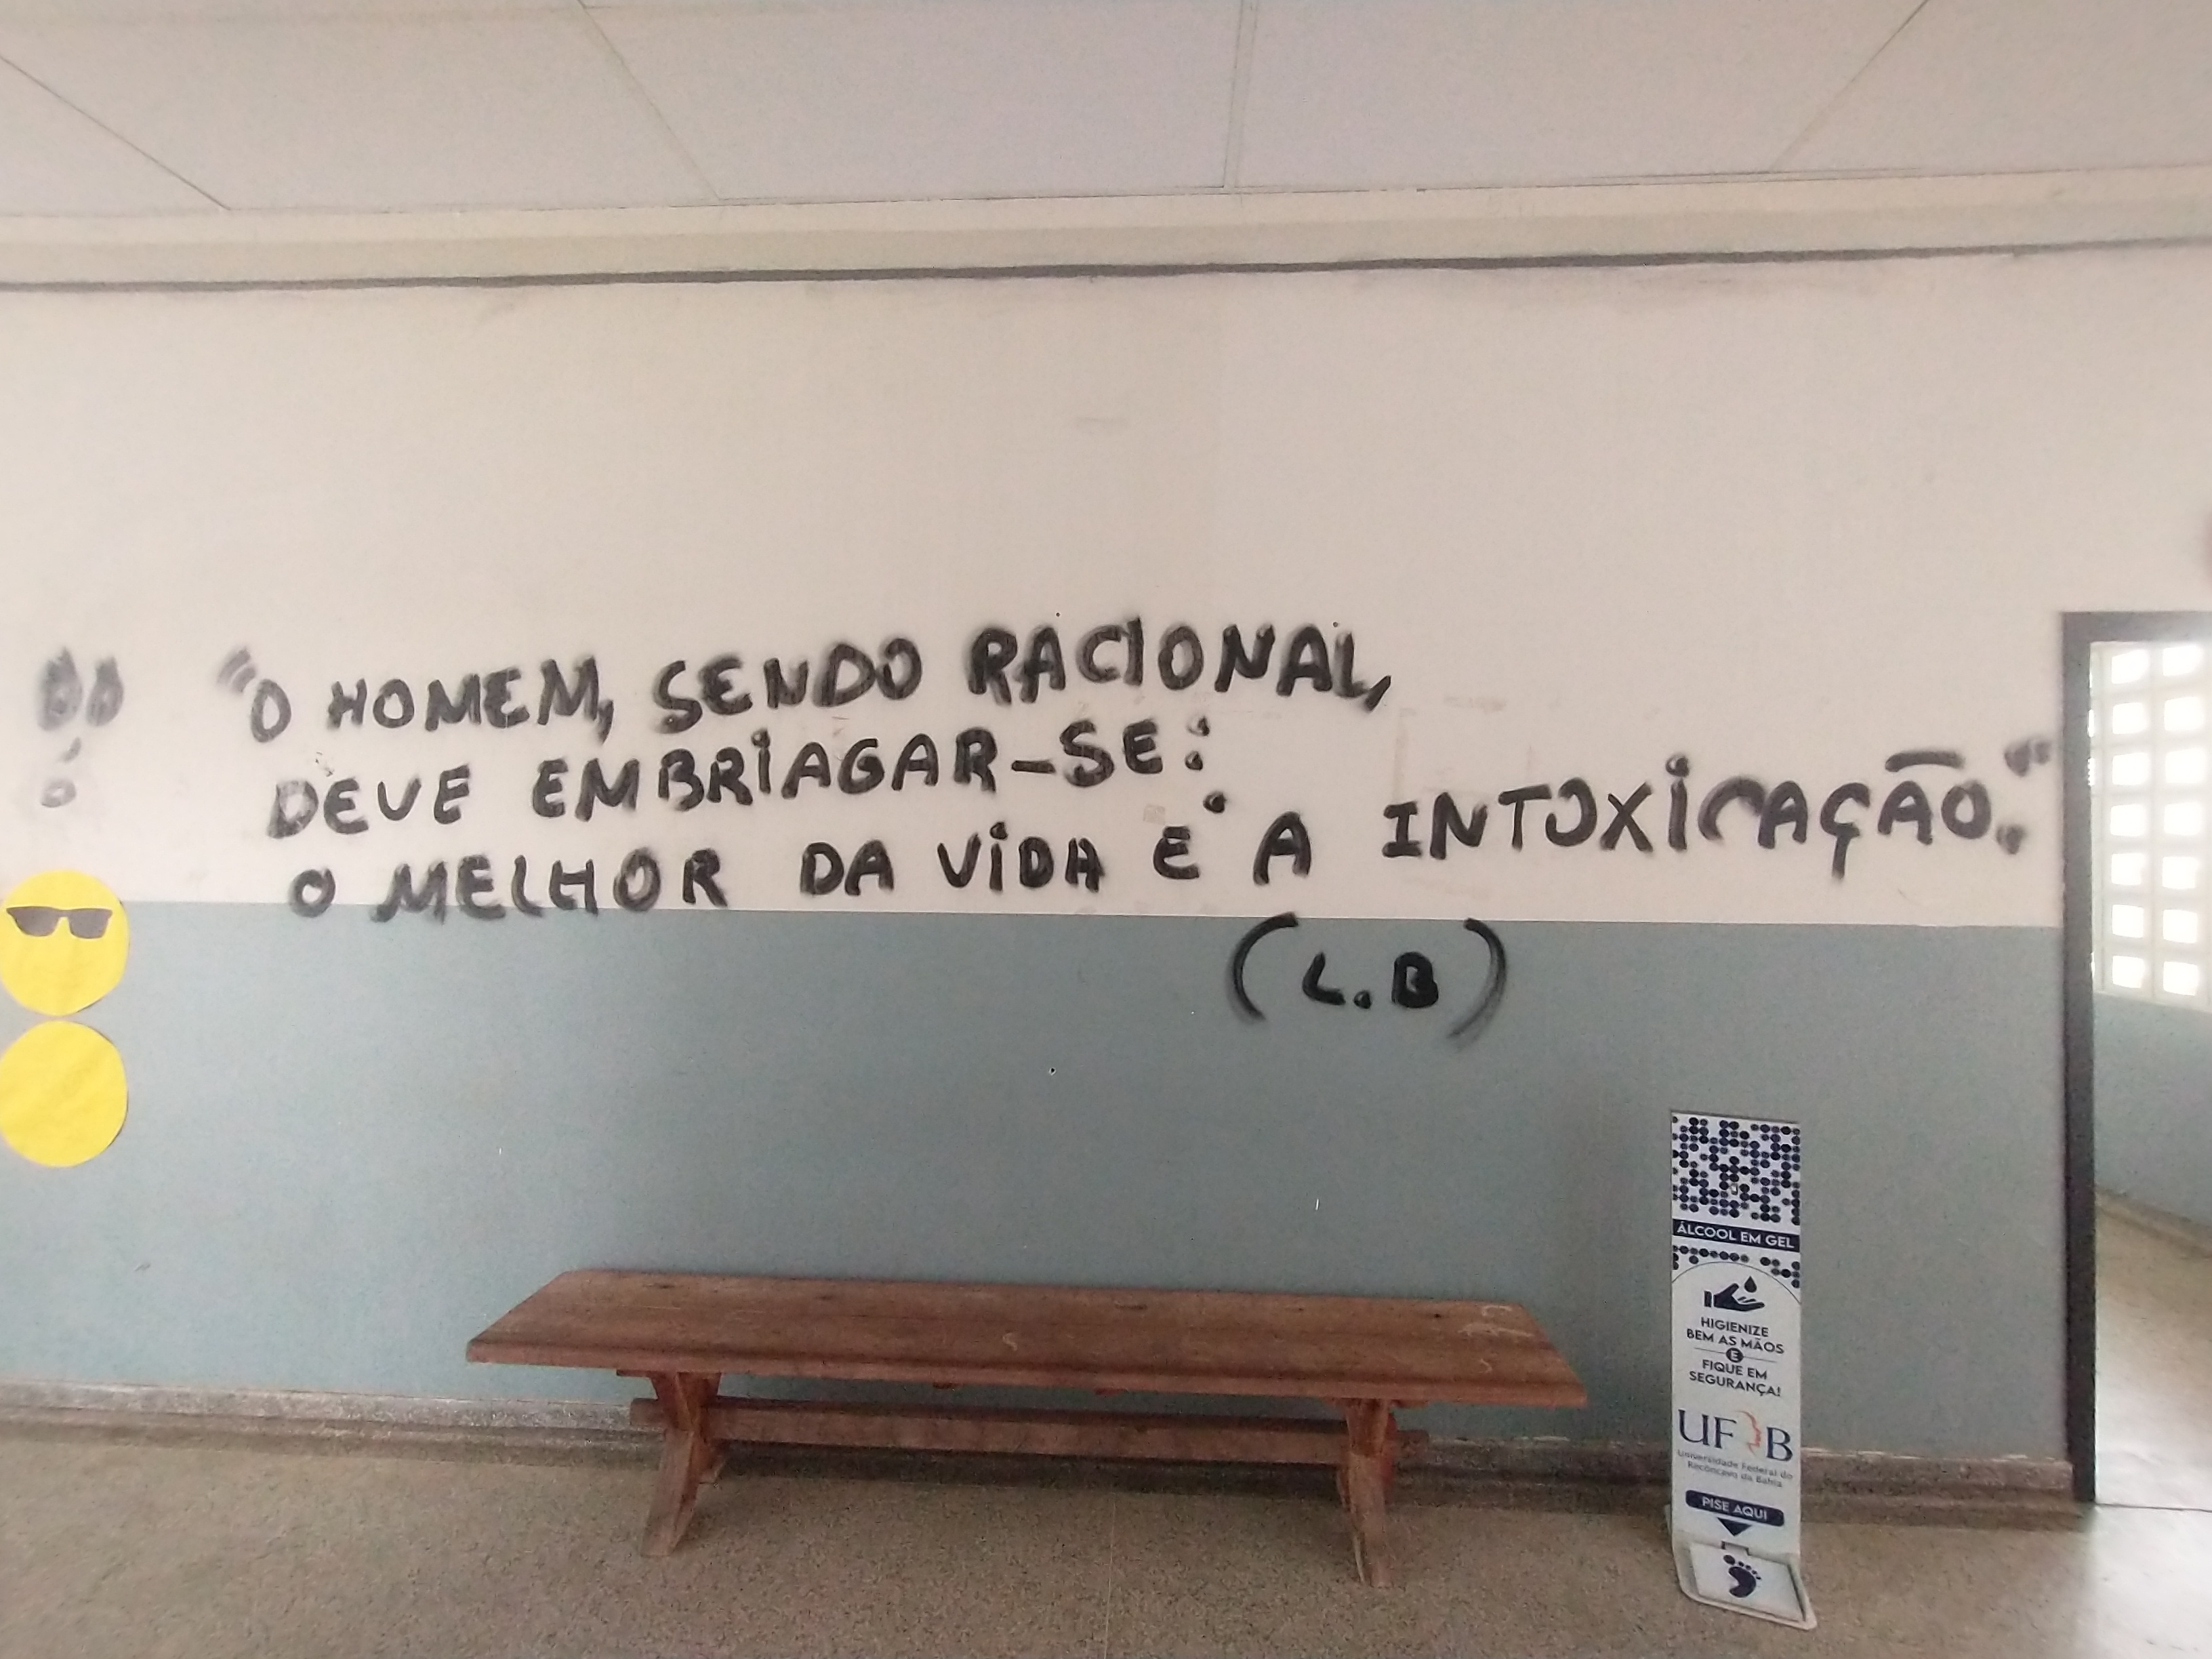 "O HOMEM, SENDO RACIONAL,
DEVE EMBRIAGAR-SE:
O MELHOR DA VIDA É A INTOXICAÇÃO."
(L.B)
ÁLCOOL EM GEL
HIGIENIZE
BEM AS MÃOS
E
FIQUE EM
SEGURANÇA!
UFRB
Universidade Federal do
Recôncavo da Bahia
PISE AQUI